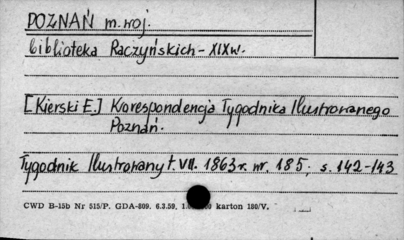 POZNAŃ m. woj.
biblioteka Raczyńskich - XIX w.
[Kierski E.] Korespondencja Tygodnika Ilustrowanego
Poznań.
Tygodnik Ilustrowany t. VII. 1863 r. nr. 185, s. 142-143
CWD B-15b Nr 515/P. GDA-809. 6.3.59. karton 180/V.